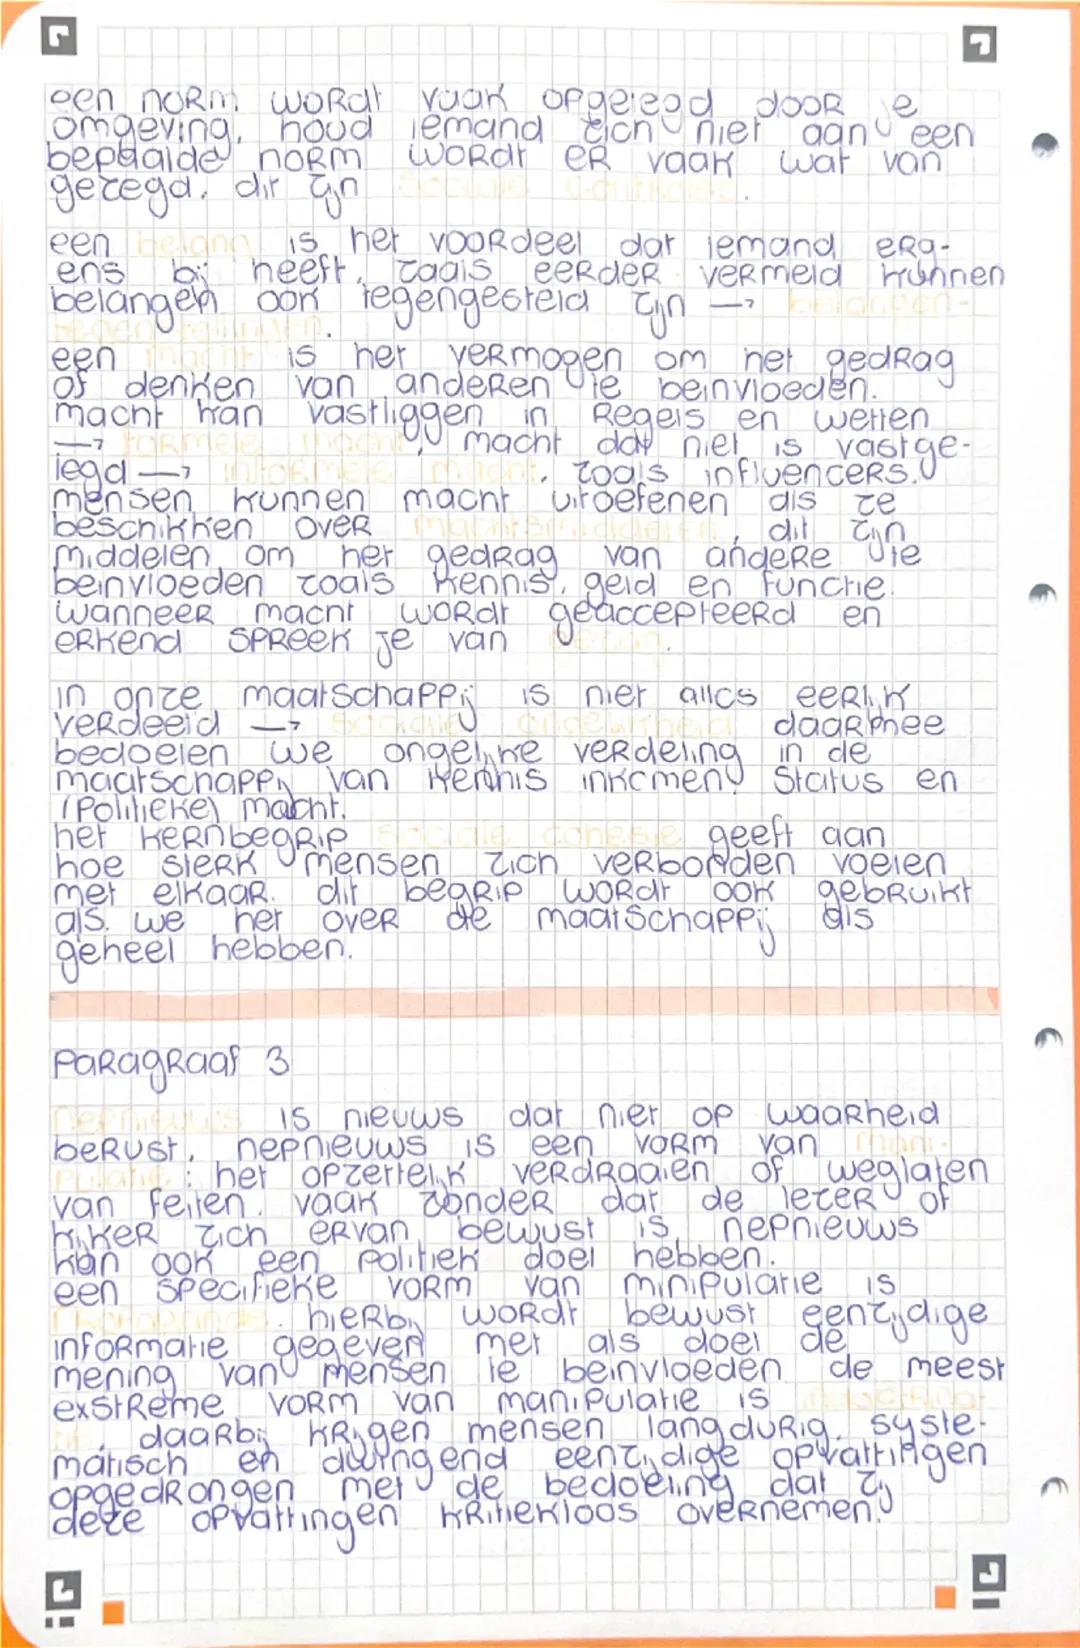 een norm wordt vaak opgelegd door je
omgeving. houd iemand zich niet aan een
bepaalde norm wordt er vaak wat van
gezegd. dit zijn sociale controle.
een belang is het voordeel dat iemand erg-
ens bij heeft, zoals eerder vermeld kunnen
belangen ook tegengesteld zijn → belangen-
tegenstellingen.
een macht is het vermogen om het gedrag
of denken van anderen te beinvloeden.
macht kan vastliggen in regels en wetten
→ formele macht, macht dat niet is vastge-
legd → informele macht. zoals influencers.
mensen kunnen macht uitoefenen als ze
beschikken over machtsmiddelen, dit zijn
middelen om het gedrag van andere te
beinvloeden zoals kennis, geld en functie.
wanneer macht wordt geaccepteerd en
erkend spreek je van gezag.
in onze maatschappij is niet alles eerlijk
verdeeld → sociale ongelijkheid daarmee
bedoelen we ongelijke verdeling in de
maatschappij van kennis inkomen status en
(politieke) macht.
het kernbegrip sociale cohesie geeft aan
hoe sterk mensen zich verbonden voelen
met elkaar. dit begrip wordt ook gebruikt
als we het over de maatschappij als
geheel hebben.
Paragraaf 3
nepnieuws is nieuws dat niet op waarheid
berust. nepnieuws is een vorm van mani-
pulatie: het opzettelijk verdraaien of weglaten
van feiten. vaak zonder dat de lezer of
kijker zich ervan bewust is nepnieuws
kan ook een politiek doel hebben.
een specifieke vorm van minipulatie is
propaganda. hierbij wordt bewust eenzijdige
informatie gegeven met als doel de
mening van mensen te beinvloeden de meest
exstreme vorm van manipulatie is indoctrina-
tie, daarbij krijgen mensen langdurig, syste-
matisch en dwingend eenzijdige opvattingen
opgedrongen met de bedoeling dat zij
deze opvattingen kritiekloos overnemen.